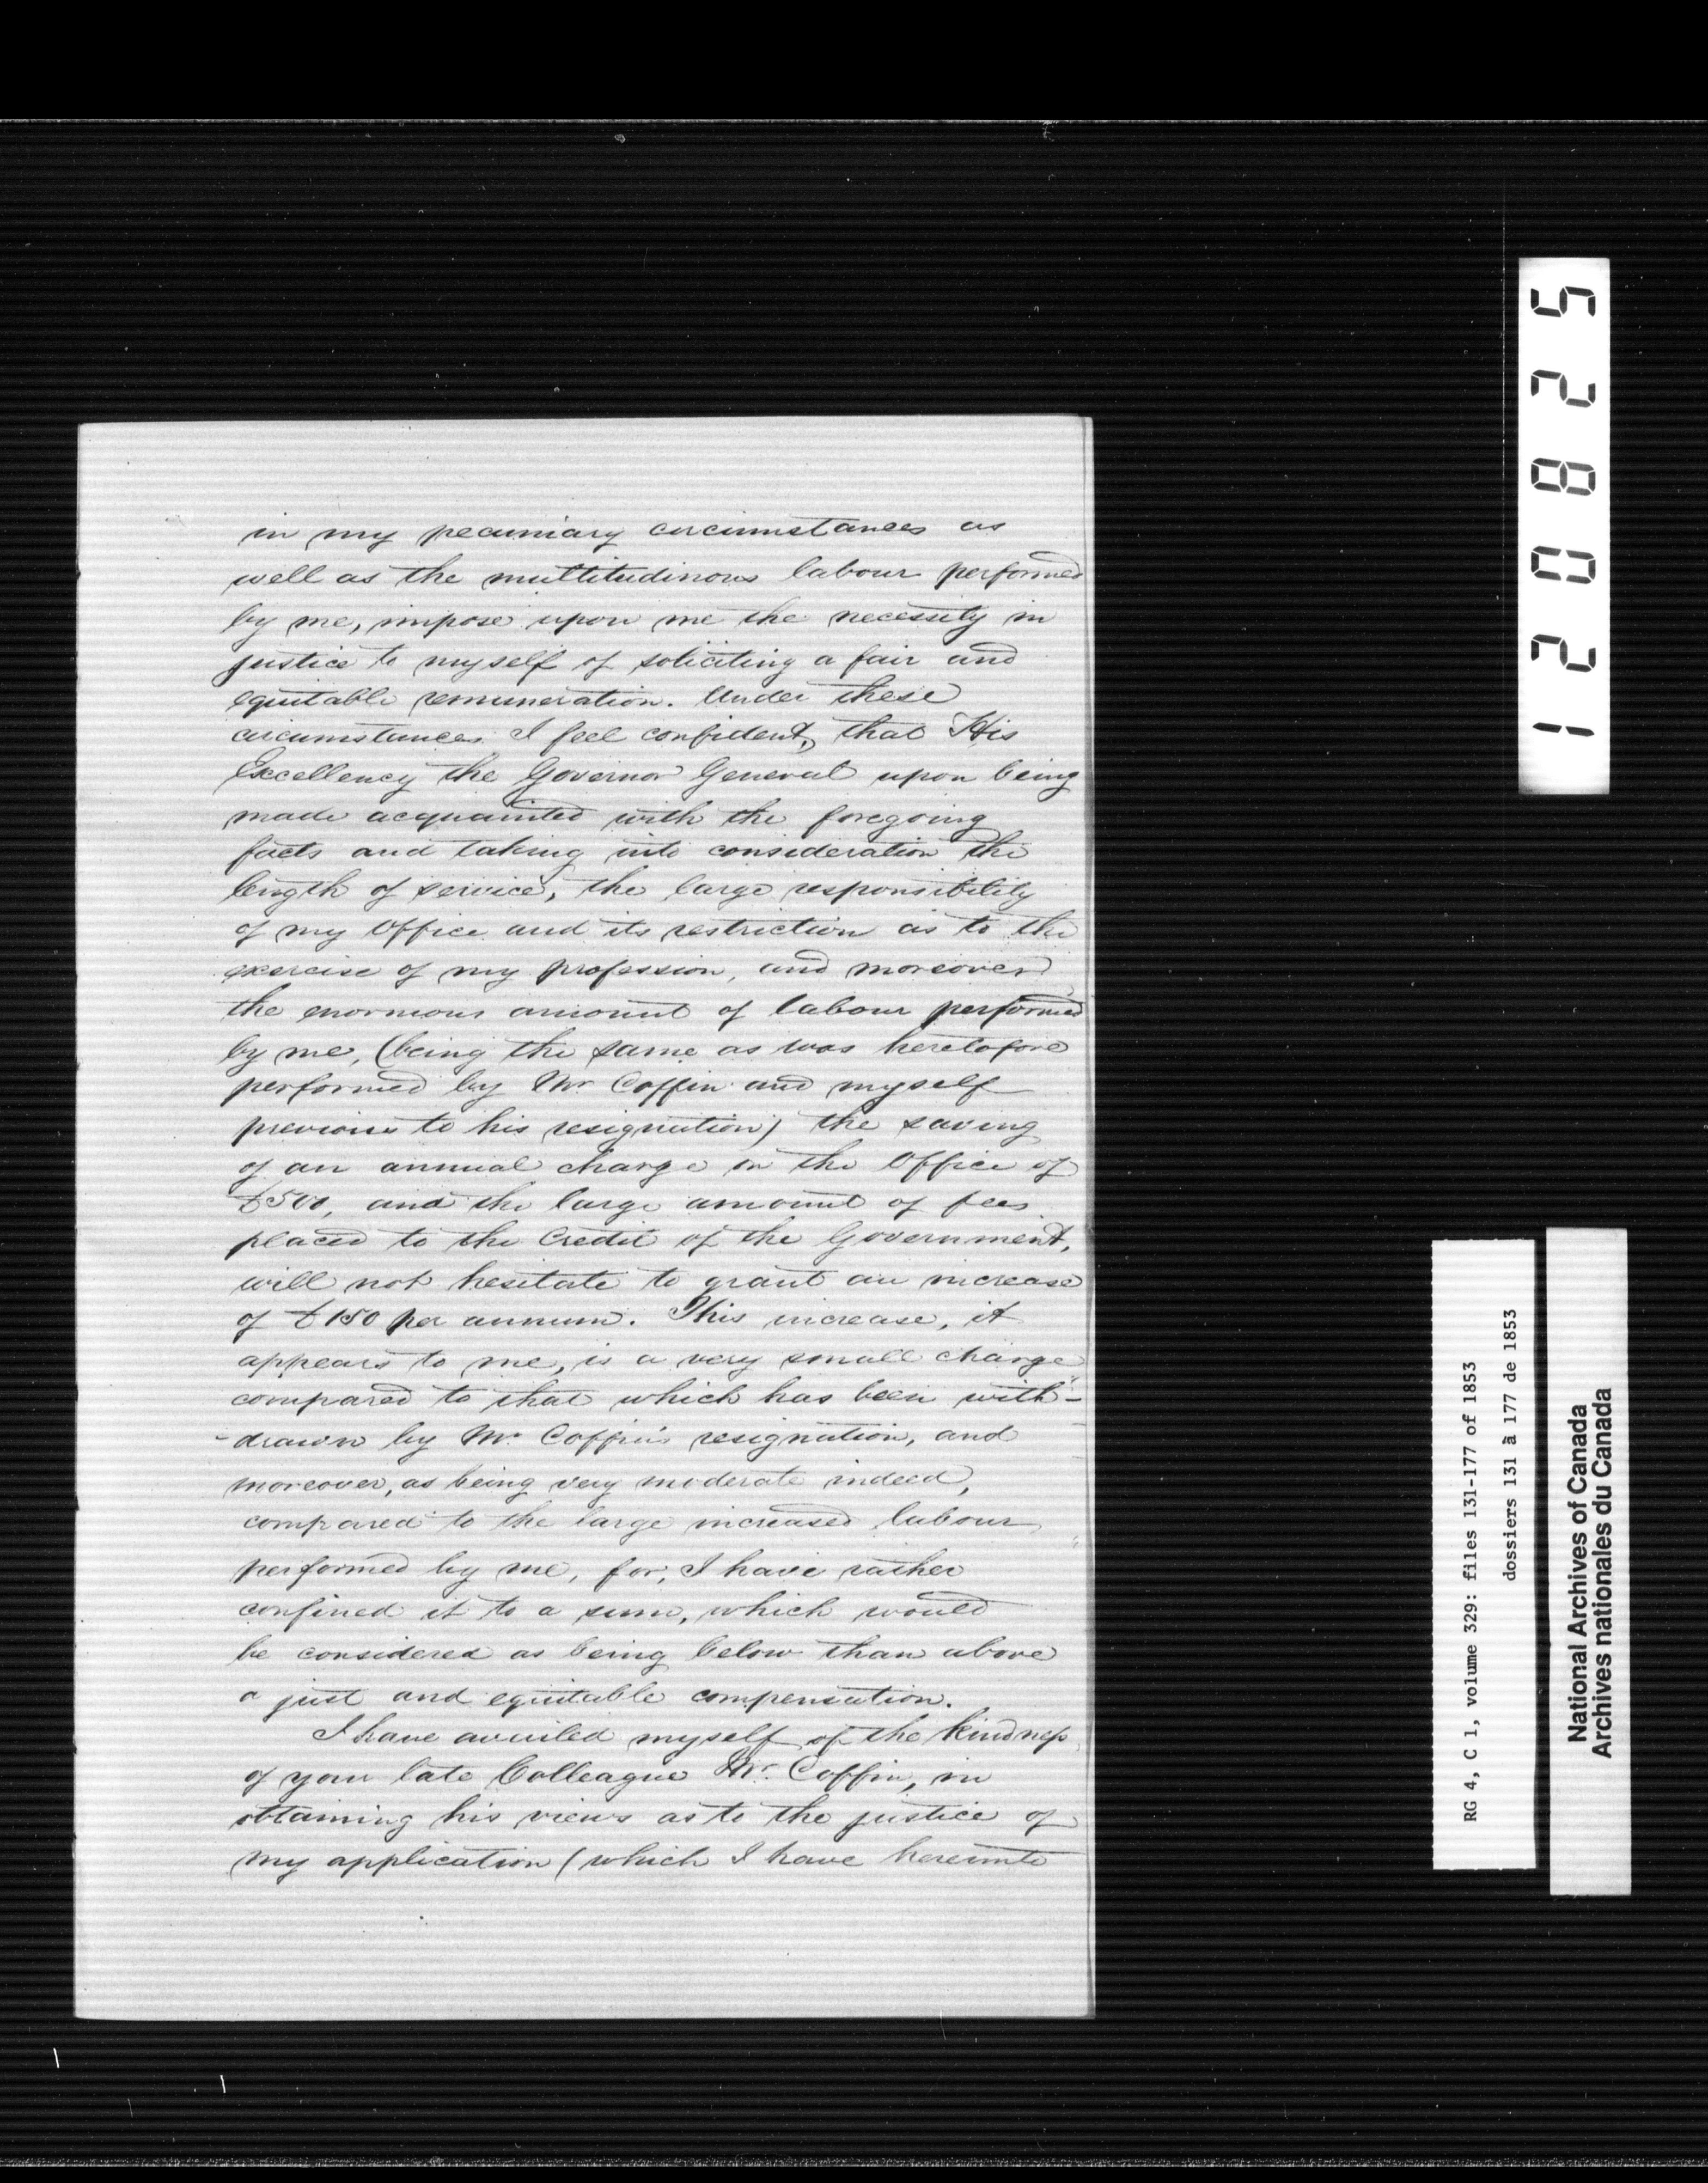 in my pecuniary circumstances as
well as the multitudinous labour performed
by me, impose upon me the necessity in
justice to myself of soliciting a fair and
equitable remuneration. Under these
circumstances I feel confident, that His
Excellency the Governor General upon being
made acquainted with the foregoing
facts and taking into consideration the
length of service, the large responsibility
of my Office and its restriction as to the
exercise of my profession, and moreover
the enormous amount of labour performed
by me, (being the same as was heretofore
performed by Mr. Coffin and myself
previous to his resignation) the saving
of an annual charge on the Office of
£500, and the large amount of fees
placed to the Credit of the Government,
will not hesitate to grant an increase
of £150 per annum. This increase, it
appears to me, is a very small charge
compared to that which has been with-
-drawn by Mr. Coffin's resignation, and
moreover, as being very moderate indeed,
compared to the large increased labour
performed by me, for, I have rather
confined it to a sum, which would
be considered as being below than above
a just and equitable compensation.
I have availed myself of the kindness
of your late Colleague Mr. Coffin, in
obtaining his views as to the justice of
my application (which I have hereunto
120825
RG 4, C 1, volume 329: files 131-177 of 1853
dossiers 131 à 177 de 1853
National Archives of Canada
Archives nationales du Canada